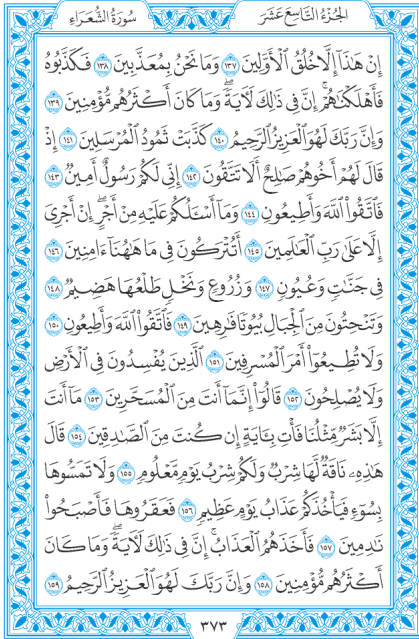 الجُزْءُ التَّاسِعَ عَشَرَ
سُورَةُ الشُّعَرَاءِ
إِنْ هَٰذَآ إِلَّا خُلُقُ ٱلْأَوَّلِينَ ١٣٧ وَمَا نَحْنُ بِمُعَذَّبِينَ ١٣٨ فَكَذَّبُوهُ
فَأَهْلَكْنَٰهُمْ ۗ إِنَّ فِى ذَٰلِكَ لَـَٔايَةً ۖ وَمَا كَانَ أَكْثَرُهُم مُّؤْمِنِينَ ١٣٩
وَإِنَّ رَبَّكَ لَهُوَ ٱلْعَزِيزُ ٱلرَّحِيمُ ١٤٠ كَذَّبَتْ ثَمُودُ ٱلْمُرْسَلِينَ ١٤١ إِذْ
قَالَ لَهُمْ أَخُوهُمْ صَٰلِحٌ أَلَا تَتَّقُونَ ١٤٢ إِنِّى لَكُمْ رَسُولٌ أَمِينٌ ١٤٣
فَٱتَّقُوا۟ ٱللَّهَ وَأَطِيعُونِ ١٤٤ وَمَآ أَسْـَٔلُكُمْ عَلَيْهِ مِنْ أَجْرٍ ۖ إِنْ أَجْرِىَ
إِلَّا عَلَىٰ رَبِّ ٱلْعَٰلَمِينَ ١٤٥ أَتُتْرَكُونَ فِى مَا هَٰهُنَآ ءَامِنِينَ ١٤٦
فِى جَنَّٰتٍ وَعُيُونٍ ١٤٧ وَزُرُوعٍ وَنَخْلٍ طَلْعُهَا هَضِيمٌ ١٤٨
وَتَنْحِتُونَ مِنَ ٱلْجِبَالِ بُيُوتًا فَٰرِهِينَ ١٤٩ فَٱتَّقُوا۟ ٱللَّهَ وَأَطِيعُونِ ١٥٠
وَلَا تُطِيعُوٓا۟ أَمْرَ ٱلْمُسْرِفِينَ ١٥١ ٱلَّذِينَ يُفْسِدُونَ فِى ٱلْأَرْضِ
وَلَا يُصْلِحُونَ ١٥٢ قَالُوٓا۟ إِنَّمَآ أَنتَ مِنَ ٱلْمُسَحَّرِينَ ١٥٣ مَآ أَنتَ
إِلَّا بَشَرٌ مِّثْلُنَا فَأْتِ بِـَٔايَةٍ إِن كُنتَ مِنَ ٱلصَّٰدِقِينَ ١٥٤ قَالَ
هَٰذِهِۦ نَاقَةٌ لَّهَا شِرْبٌ وَلَكُمْ شِرْبُ يَوْمٍ مَّعْلُومٍ ١٥٥ وَلَا تَمَسُّوهَا
بِسُوٓءٍ فَيَأْخُذَكُمْ عَذَابُ يَوْمٍ عَظِيمٍ ١٥٦ فَعَقَرُوهَا فَأَصْبَحُوا۟
نَٰدِمِينَ ١٥٧ فَأَخَذَهُمُ ٱلْعَذَابُ ۗ إِنَّ فِى ذَٰلِكَ لَـَٔايَةً ۖ وَمَا كَانَ
أَكْثَرُهُم مُّؤْمِنِينَ ١٥٨ وَإِنَّ رَبَّكَ لَهُوَ ٱلْعَزِيزُ ٱلرَّحِيمُ ١٥٩
٣٧٣